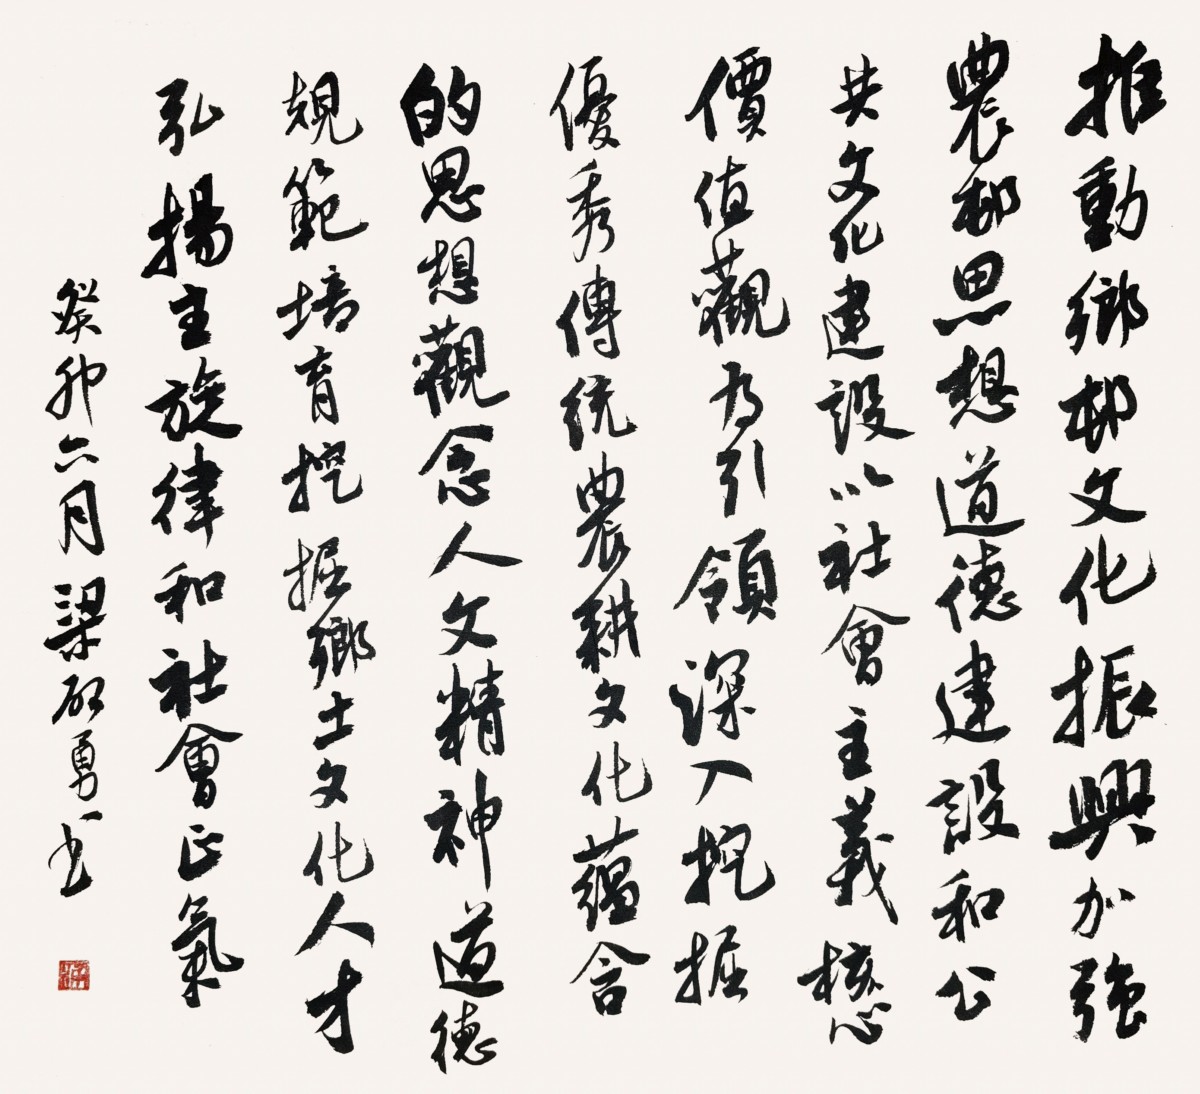 推動鄉邨文化振興加強
農邨思想道德建設和公
共文化建設以社會主義核心
價值觀為引領深入挖掘
優秀傳統農耕文化蘊含
的思想觀念人文精神道德
規範培育挖掘鄉土文化人才
弘揚主旋律和社會正氣
癸卯六月梁啟勇書